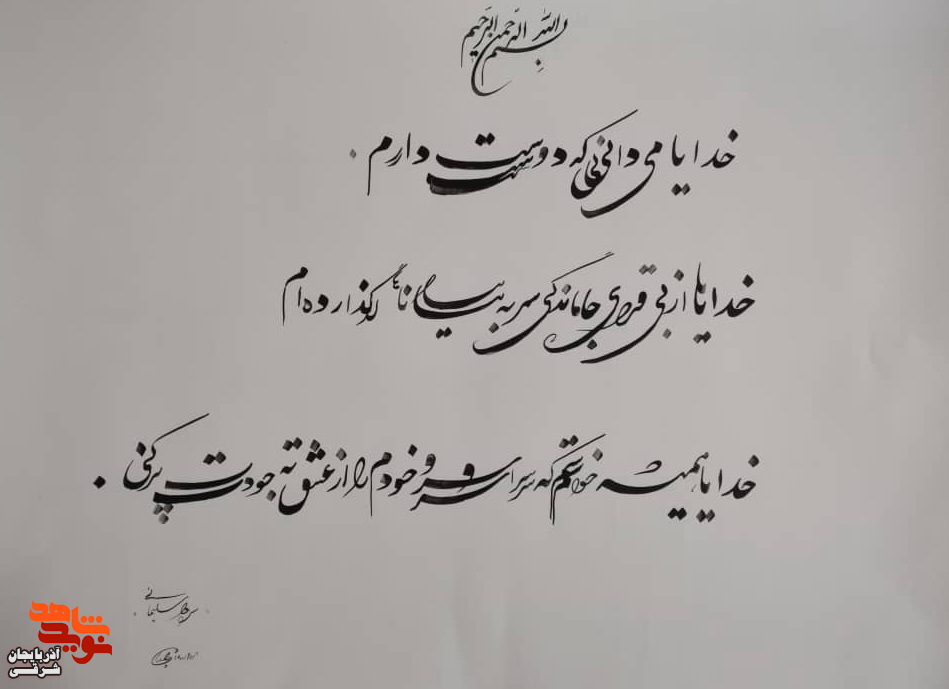 بسم الله الرحمن الرحیم
خدایا می دانی که دوست دارم .
خدایا از بی قراری جاماندگی سر به بیابانها گذارده ام
خدایا همیشه خواستم که سراسر وجودم را از عشق به خودت پر کنی .
سردار سلیمانی
نوید شاهد
آذربایجان
شرقی